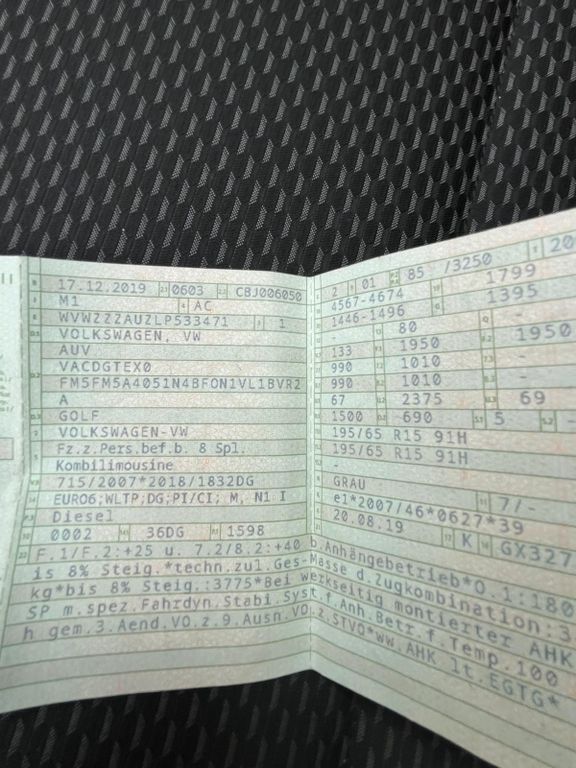 17.12.2019 0603 CBJ006050
M1 AC
WVWZZZAUZLP533471 1
VOLKSWAGEN, VW
AUV
VACDGTEX0
FM5FM5A4051N4BFON1VL1BVR2
A
GOLF
VOLKSWAGEN-VW
Fz.z.Pers.bef.b. 8 Spl.
Kombilimousine
715/2007*2018/1832DG
EURO6;WLTP;DG;PI/CI; M, N1 I
Diesel
0002 36DG 1598
2 01 85 /3250 20
4567-4674 1799
1446-1496 1395
- 80 -
133 1950 1950
990 1010 -
990 1010 -
67 2375 69
1500 690 5 -
195/65 R15 91H
195/65 R15 91H
-
GRAU
e1*2007/46*0627*39 7/-
20.08.19 K GX327
F.1/F.2:+25 u. 7.2/8.2:+40 b.Anhängebetrieb*O.1:180
is 8% Steig.*techn.zul.Ges-Masse d.Zugkombination:3
kg*bis 8% Steig.:3775*Bei werkseitig montierter AHK
SP m.spez.Fahrdyn.Stabi.Syst f.Anh.Betr.f.Temp.100
h gem.3.Aend.VO.z.9.Ausn.VO.z.STVO*ww.AHK lt.EGTG*